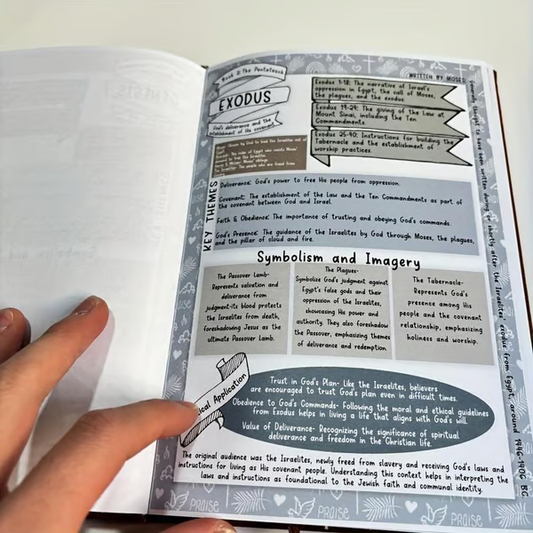 Book 2: The Pentateuch
EXODUS
God's deliverance and the
establishment of His covenant.
WRITTEN BY MOSES
Exodus 1-18: The narrative of Israel's
oppression in Egypt, the call of Moses,
the plagues, and the exodus
Exodus 19-24: The giving of the Law at
Mount Sinai, including the Ten
Commandments.
Exodus 25-40: Instructions for building the
Tabernacle and the establishment of
worship practices.
KEY THEMES
Deliverance: God's power to free His people from oppression.
Covenant: The establishment of the Law and the Ten Commandments as part of
the covenant between God and Israel.
Faith & Obedience: The importance of trusting and obeying God's commands.
God's Presence: The guidance of the Israelites by God through Moses, the plagues,
and the pillar of cloud and fire.
Symbolism and Imagery
The Passover Lamb-
Represents salvation and
deliverance from
judgment-its blood protects
the Israelites from death,
foreshadowing Jesus as the
ultimate Passover Lamb.
The Plagues-
Symbolize God's judgment against
Egypt's false gods and their
oppression of the Israelites,
showcasing His power and
authority. They also foreshadow
the Passover, emphasizing themes
of deliverance and redemption.
The Tabernacle-
Represents God's
presence among His
people and the covenant
relationship, emphasizing
holiness and worship.
ical Application
Trust in God's Plan- Like the Israelites, believers
are encouraged to trust God's plan even in difficult times.
Obedience to God's Commands- Following the moral and ethical guidelines
from Exodus helps in living a life that aligns with God's will.
Value of Deliverance- Recognizing the significance of spiritual
deliverance and freedom in the Christian life.
The original audience was the Israelites, newly freed from slavery and receiving God's laws and
instructions for living as His covenant people. Understanding this context helps in interpreting the
laws and instructions as foundational to the Jewish faith and communal identity.
Generally thought to have been written during or shortly after the Israelites' exodus from Egypt, around 1446-1406 BC
PRAISE
PRAISE
PRAISE